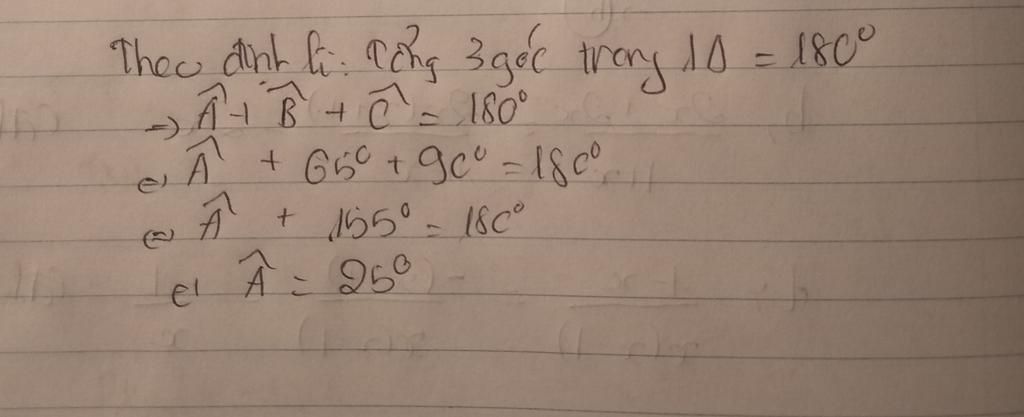 Theo định lí: Tổng 3 góc trong 1Δ = 180°
=> Â + B̂ + Ĉ = 180°
<=> Â + 65° + 90° = 180°
<=> Â + 155° = 180°
<=> Â = 25°